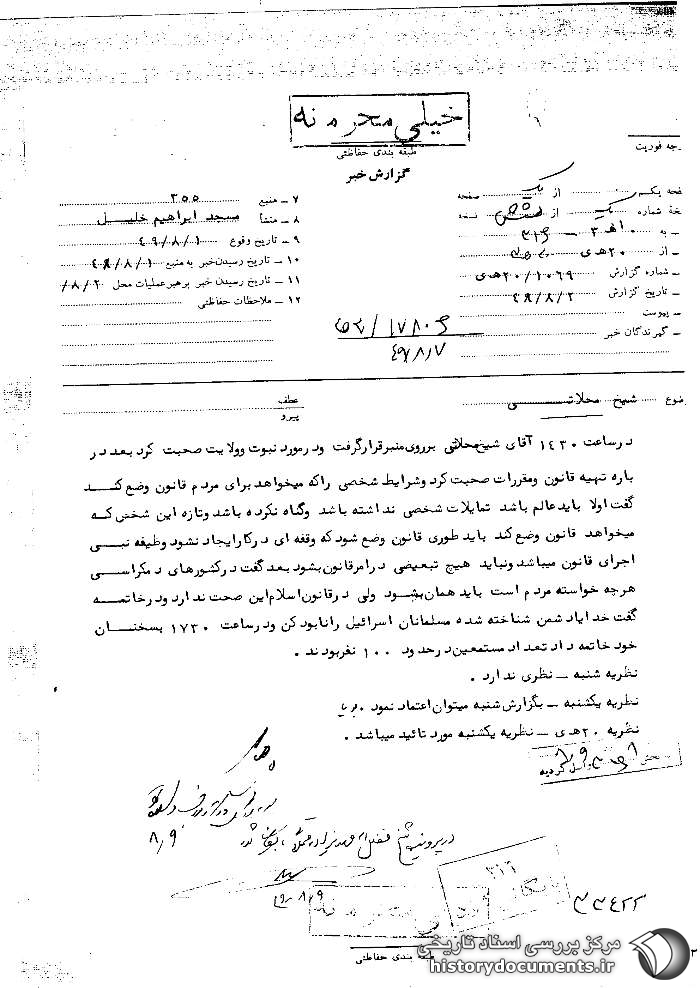 خیلی محرمانه
طبقه بندی حفاظتی
گزارش خبر
درجه فوریت
یک از صفحه
نسخه شماره یک از شش نسخه
به ۱۰هـ۳ – ۳۱۶
از ۲۰هـ ی
شماره گزارش ۲۰/۱۰۶۹هـ ی
تاریخ گزارش ۴۹/۸/۲
پیوست
گیرندگان خبر
۷ – منبع ۳۵۵
۸ – منشأ مسجد ابراهیم خلیل
۹ – تاریخ وقوع ۴۹/۸/۱
۱۰ – تاریخ رسیدن خبر به منبع ۴۹/۸/۱
۱۱ – تاریخ رسیدن خبر برهبر عملیات محل ۸/۲/
۱۲ – ملاحظات حفاظتی
۴۹/۸/۷
موضوع شیخ محلاتی
عطف
پیرو
درساعت ۱۴۳۰ آقای شیخ محلاتی برروی منبرقرارگرفت ودرمورد نبوت وولایت صحبت کرد بعد در
باره تهیه قانون ومقررات صحبت کرد وشرایط شخصی راکه میخواهد برای مردم قانون وضع کنـــد
گفت اولا باید عالم باشد تمایلات شخصی نداشته باشد وگناه نکرده باشد وتازه این شخص که
میخواهد قانون وضع کند باید طوری قانون وضع شود که وقفه ای درکارایجاد نشود وظیفه نبـــی
اجرای قانون میباشد ونباید هیچ تبعیضی درامرقانون بشود بعد گفت درکشورهای دمکراســـی
هرچه خواسته مردم است باید همان بشود ولی درقانون اسلام این صحت ندارد ودرخاتمـــه
گفت خدایا دشمن شناخته شده مسلمانان اسرائیل رانابودکن ودرساعت ۱۷۳۰ بسخنـــان
خود خاتمه داد تعداد مستمعین درحدود ۱۰۰ نفربودند .
نظریه شنبه – نظری ندارد .
نظریه یکشنبه – بگزارش شنبه میتوان اعتماد نمود .
نظریه ۲۰هـ ی – نظریه یکشنبه مورد تائید میباشد .
۸/۹
در پرونده شیخ فضل اله
۸/۹
۳۱۶
بایگانی
خیلی محرمانه
۳۳۴۲۲
طبقه بندی حفاظتی
مرکز بررسی اسناد تاریخی
historydocuments.ir